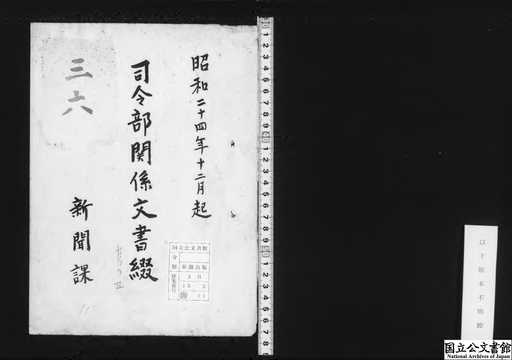 昭和二十四年十二月起
司令部関係文書綴
三六
新聞課
国立公文書館
分類
新聞出版
排架番号
3 B
15 2
11
以下原本不明瞭
国立公文書館
National Archives of Japan